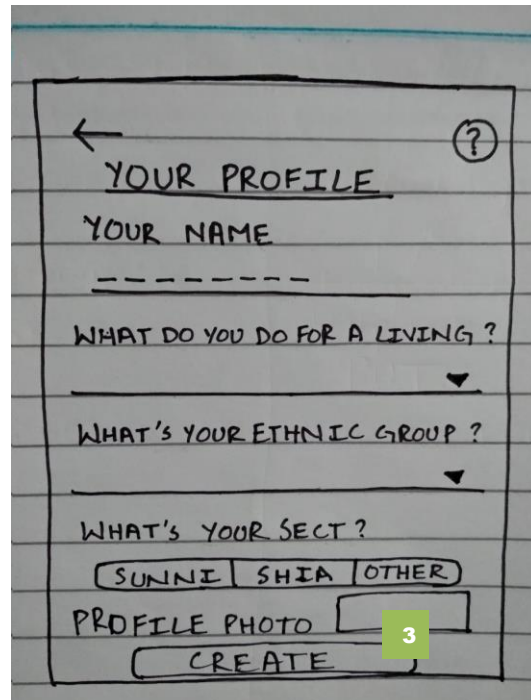 ←
?
YOUR PROFILE
YOUR NAME
--------
WHAT DO YOU DO FOR A LIVING ?
WHAT'S YOUR ETHNIC GROUP ?
WHAT'S YOUR SECT ?
SUNNI SHIA OTHER
PROFILE PHOTO 3
CREATE